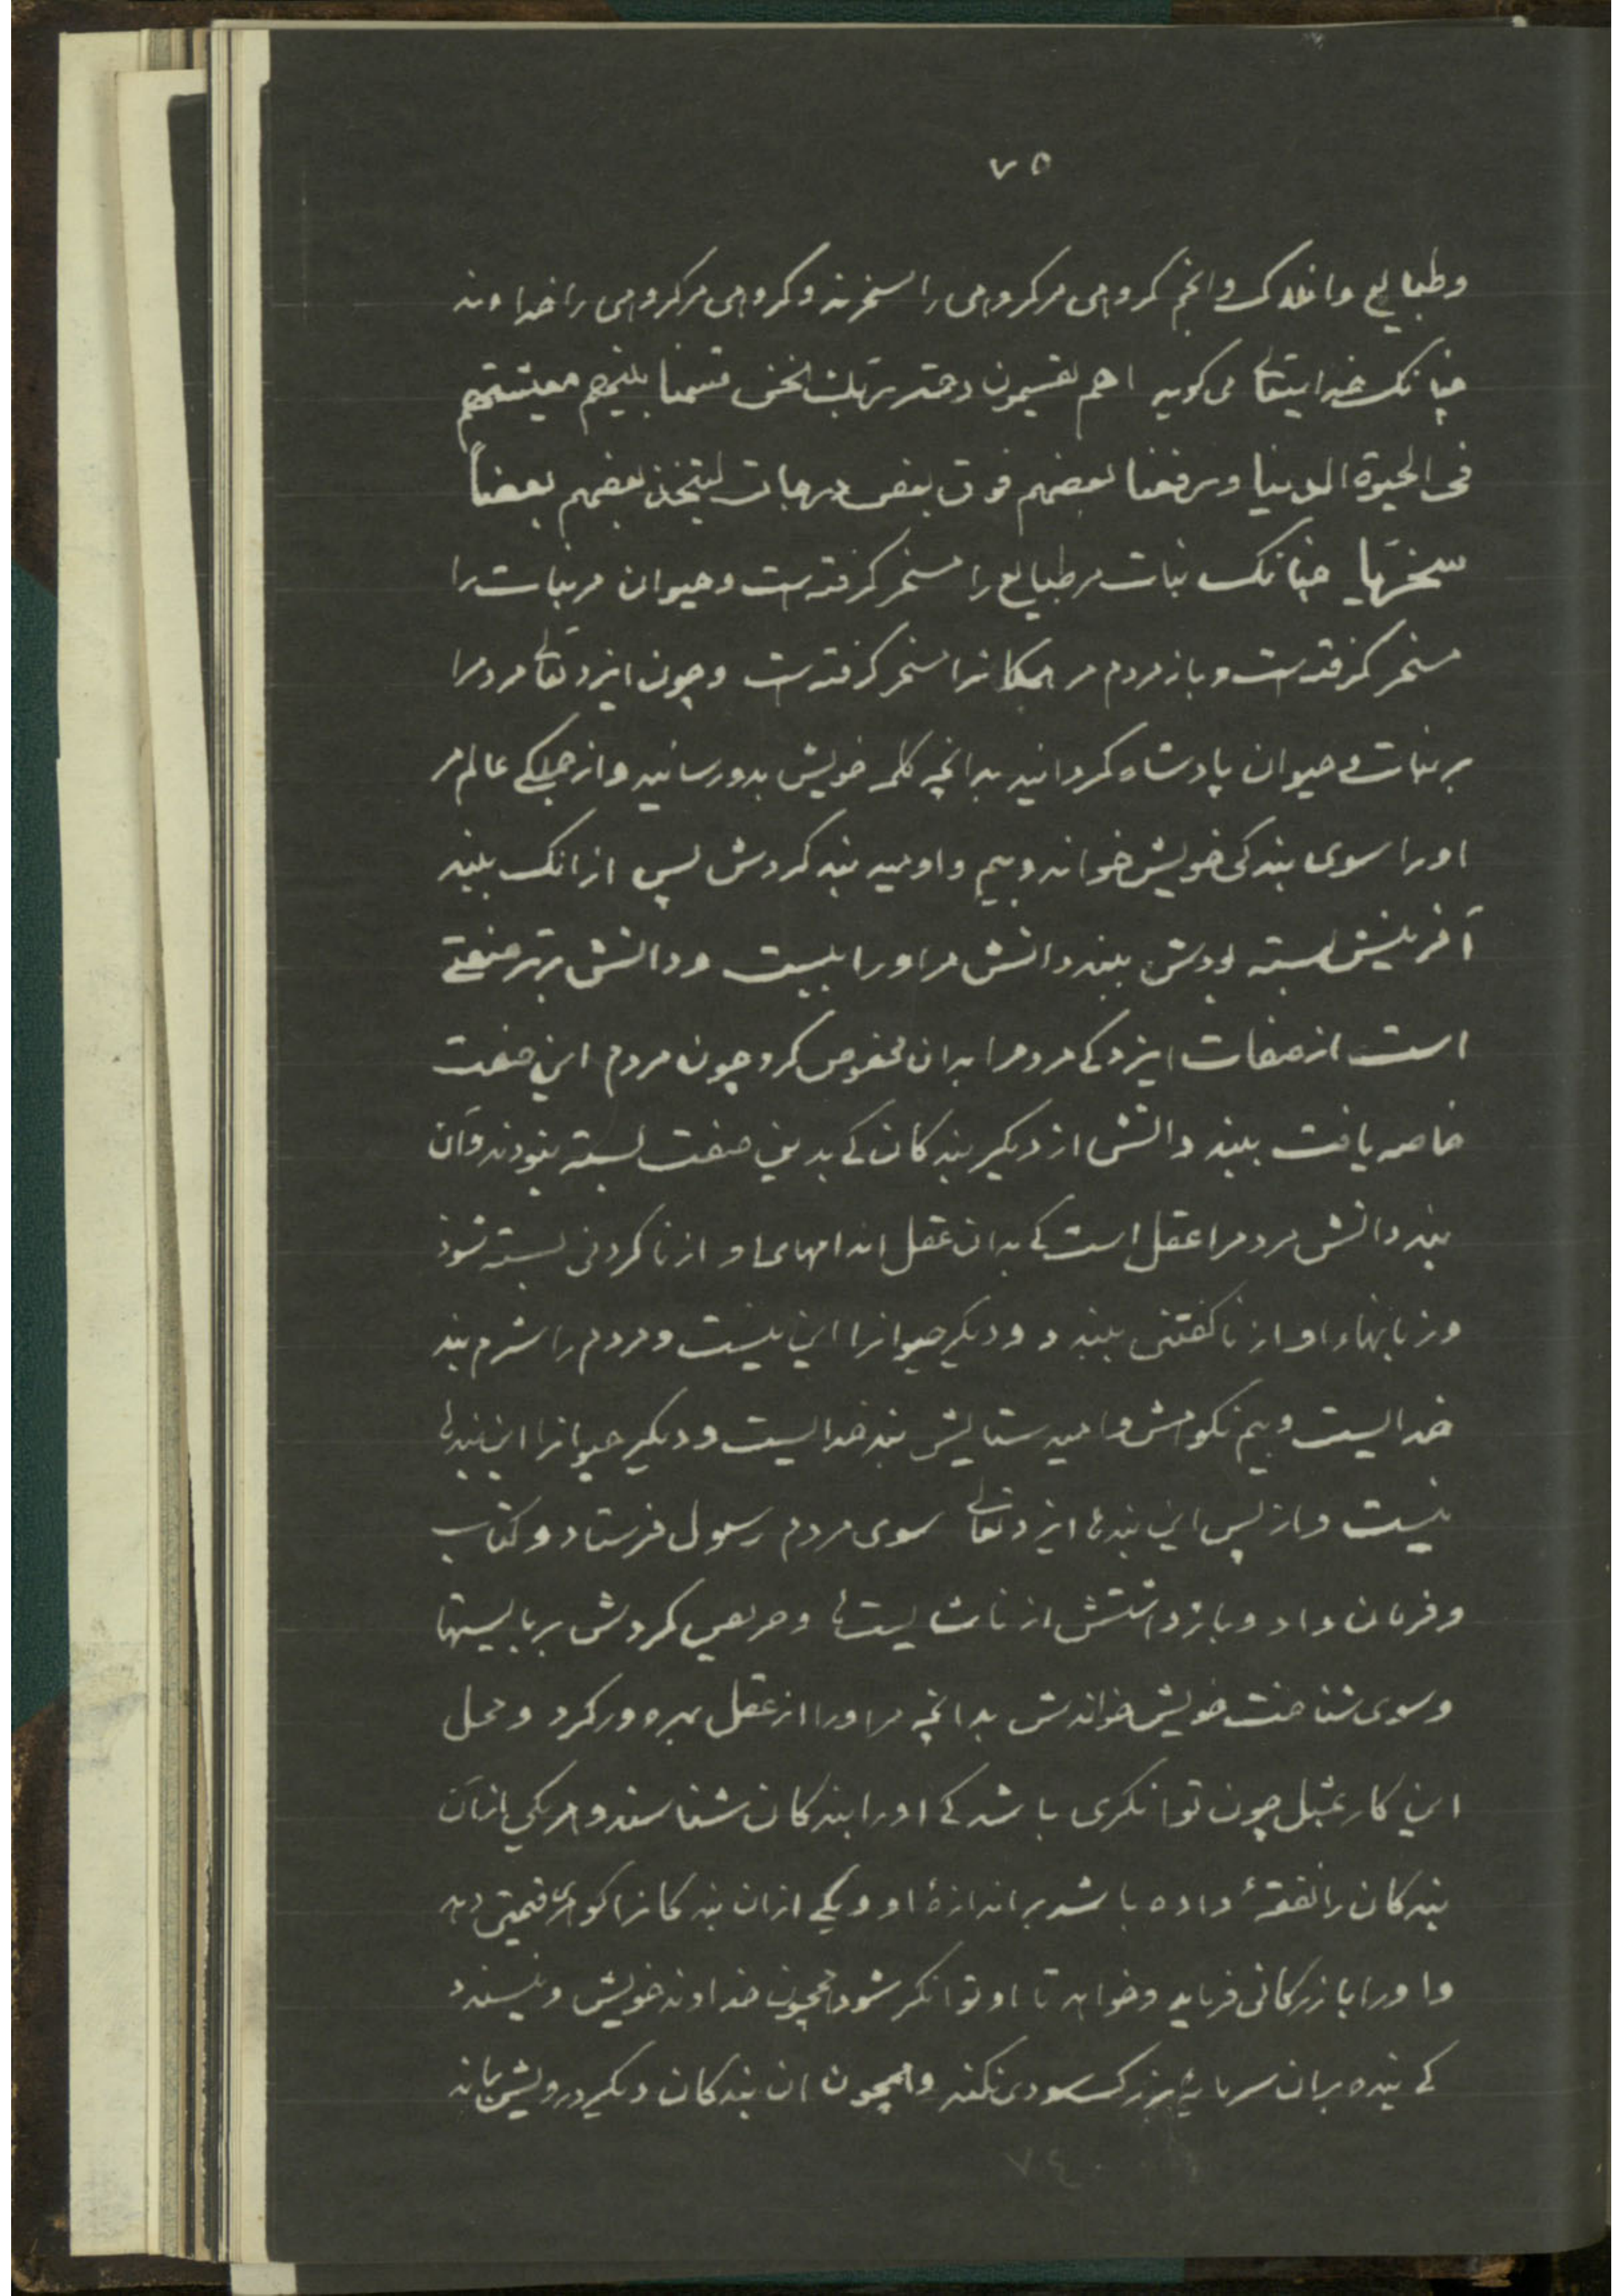 ۷۵
وطبایع وافلاک وانجم کروهی مرکروهی را سخرند وکروهی مرکروهی را خداوند
چنانک خدایتعالی می کوید اهم یقسمون رحمة ربک نحن قسمنا بینهم معیشتهم
فی الحیوة الدنیا ورفعنا بعضهم فوق بعض درجات لیتخذ بعضهم بعضاً
سخریا چنانک نبات مر طبایع را مسخر کرفته است وحیوان مر نبات را
مسخر کرفته است و باز مردم مر همکانرا مسخر کرفته است وچون ایزد تعالی مردمرا
بر نبات وحیوان پادشاه کردانید بدانچه کلمه خویش بدو رسانید واز جملکی عالم مر
اورا سوی بندکی خویش خواند وبیم واومید بند کردش پس ازانک ببند
آفرینش بسته بودش ببند دانش مر اورا ببست ودانش برتر صفتی
است از صفات ایزد کی مردمرا بدان مخصوص کرد چون مردم این صفت
خاصه یافت ببند دانش از دیکر بندکان کی بدین صفت بسته نبودند وآن
بند دانش مردمرا عقل است کی بدان عقل اندامهای او از ناکردنی بسته شود
وزبانهاء او از ناکفتنی ببندد ودیکر حیوانرا این نیست ومردم را شرم بند
خدایست وبیم نکوهش وامید ستایش بند خدایست ودیکر حیوانرا این بندها
نیست واز پس این بندها ایزد تعالی سوی مردم رسول فرستاد وکتاب
وفرمان داد وبازداشتش از ناشایستها وحریص کردش بر بایستها
وسوی شناخت خویش خواندش بدانچه مر اورا از عقل بهره ور کرد ومحل
این کار بمثل چون توانکری باشد کی اورا بندکان شناسند وهر یکی ازان
بندکان را نفقهٔ داده باشد بر اندازهٔ او ویکی ازان بندکانرا کوهری قیمتی دهد
واورا بازرکانی فرماید وخواهد تا او توانکر شود همچون خداوند خویش ونپسندد
کی بنده بران سرمایهٔ بزرک سودی نکند وهمچون ان بندکان دیکر درویش بماند